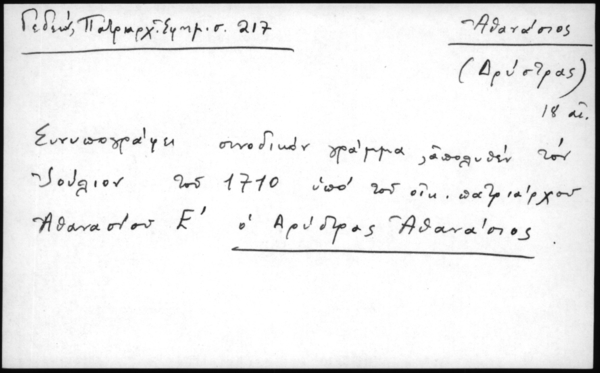 Γεδεών, Πατριαρχ. Εφημ. σ. 217
Ἀθανάσιος
(Δρύστρας)
18 αἰ.
Συνυπογράφει συνοδικόν γράμμα, ἀπολυθέν τόν
Ἰούλιον τοῦ 1710 ὑπό τοῦ οἰκ. πατριάρχου
Ἀθανασίου Ε' ὁ Δρύστρας Ἀθανάσιος